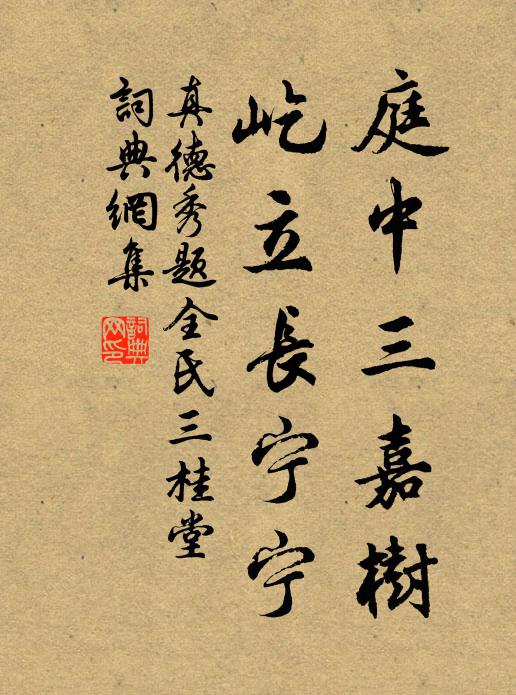 庭中三嘉樹
屹立長宁宁
真德秀题全氏三桂堂
詞典網集
詞典网印